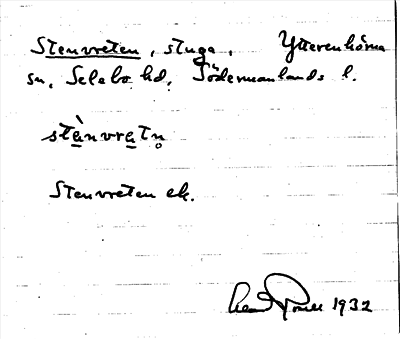 Stenvreten, stuga, Ytterenhörna
sn, Selebo hd, Södermanlands l.
stènvretn̥
Stenvreten ek.
1932